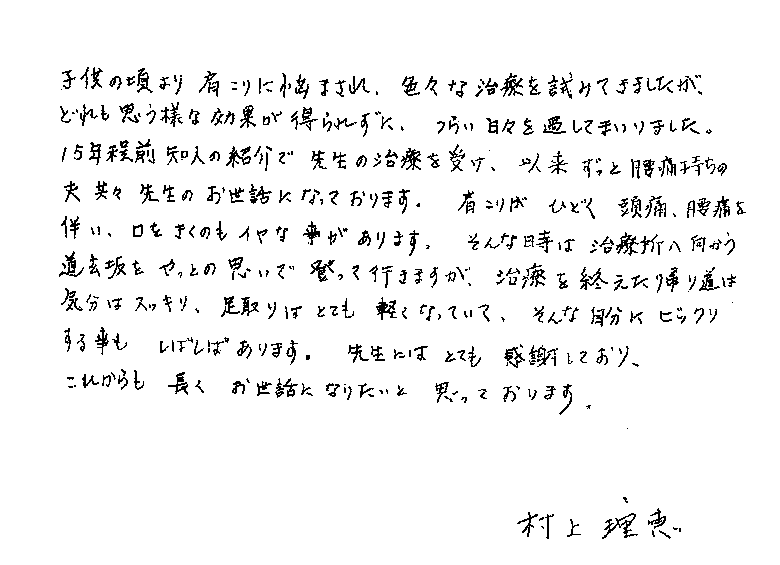 子供の頃より 肩こりに悩まされ、色々な治療を試みてきましたが、
どれも思う様な効果が得られずに、つらい日々を過してまいりました。
15年程前 知人の紹介で 先生の治療を受け、以来 ずっと腰痛持ちの
夫 共々 先生の お世話になっております。 肩こりが ひどく 頭痛、腰痛を
伴い、口をきくのもイヤな事があります。 そんな時は 治療所へ向かう
道玄坂を やっとの思いで 登って行きますが、治療を終えた帰り道は
気分はスッキリ、足取りは とても 軽くなっていて、そんな自分に ビックリ
する事も しばしばあります。 先生には とても 感謝しており、
これからも 長く お世話になりたいと 思っております。
村上 理恵